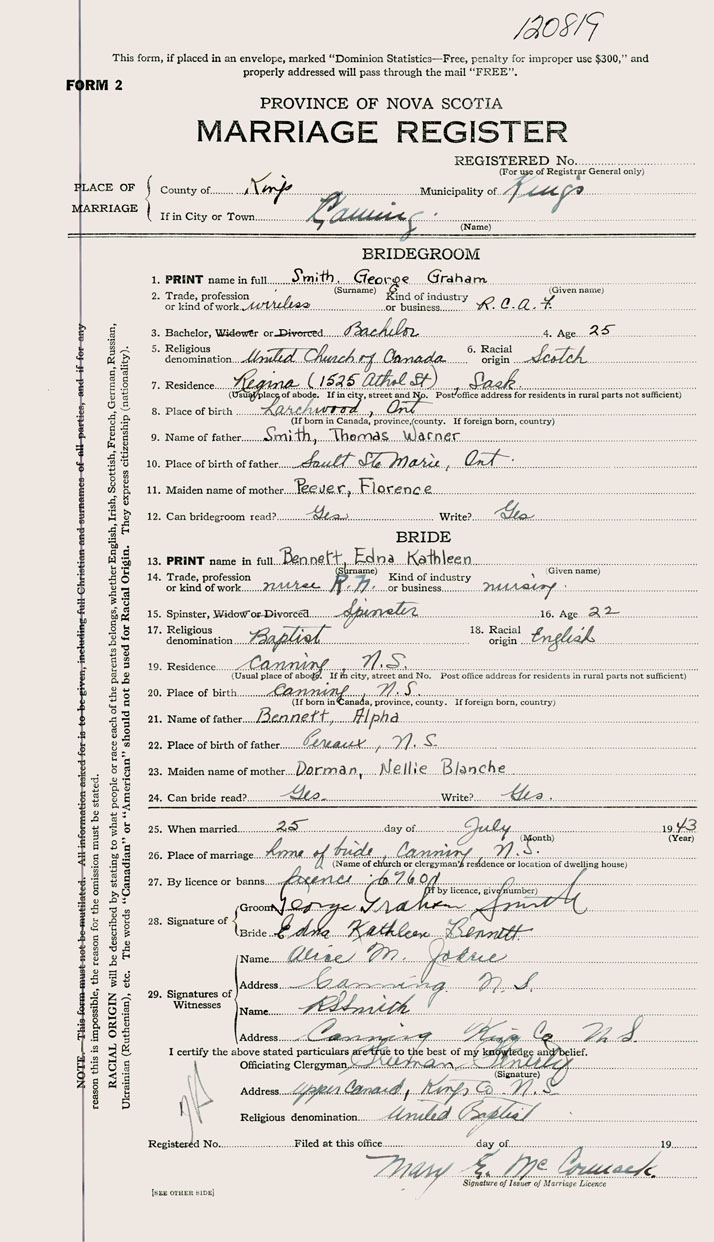 120819
This form, if placed in an envelope, marked “Dominion Statistics—Free, penalty for improper use $300,” and
properly addressed will pass through the mail “FREE”.
FORM 2
PROVINCE OF NOVA SCOTIA
MARRIAGE REGISTER
REGISTERED No.
(For use of Registrar General only)
PLACE OF MARRIAGE
County of Kings Municipality of Kings
If in City or Town Canning
(Name)
BRIDEGROOM
1. PRINT name in full Smith, George Graham
(Surname) (Given name)
2. Trade, profession or kind of work wireless Kind of industry or business R.C.A.F.
3. Bachelor, Widower or Divorced Bachelor 4. Age 25
5. Religious denomination United Church of Canada 6. Racial origin Scotch
7. Residence Regina (1525 Athol St), Sask.
(Usual place of abode. If in city, street and No. Post office address for residents in rural parts not sufficient)
8. Place of birth Larchwood, Ont
(If born in Canada, province, county. If foreign born, country)
9. Name of father Smith, Thomas Warner
10. Place of birth of father Sault Ste Marie, Ont.
11. Maiden name of mother Peever, Florence
12. Can bridegroom read? Yes Write? Yes
BRIDE
13. PRINT name in full Bennett, Edna Kathleen
(Surname) (Given name)
14. Trade, profession or kind of work nurse R.N. Kind of industry or business nursing.
15. Spinster, Widow or Divorced Spinster 16. Age 22
17. Religious denomination Baptist 18. Racial origin English
19. Residence Canning, N.S.
(Usual place of abode. If in city, street and No. Post office address for residents in rural parts not sufficient)
20. Place of birth Canning, N.S.
(If born in Canada, province, county. If foreign born, country)
21. Name of father Bennett, Alpha
22. Place of birth of father Pereaux, N.S.
23. Maiden name of mother Dorman, Nellie Blanche
24. Can bride read? Yes. Write? Yes.
25. When married 25 day of July 1943
(Month) (Year)
26. Place of marriage home of bride, Canning, N.S.
(Name of church or clergyman's residence or location of dwelling house)
27. By licence or banns licence
(If by licence, give number)
28. Signature of
Groom George Graham Smith
Bride Edna Kathleen Bennett
29. Signatures of Witnesses
Name Alice M.
Address Canning N.S.
Name R S Smith
Address Canning Kings Co N.S.
I certify the above stated particulars are true to the best of my knowledge and belief.
Officiating Clergyman Freeman
(Signature)
Address Upper Canard, Kings Co N.S.
Religious denomination United Baptist
Registered No. Filed at this office day of 19
Mary E. McCormack.
Signature of Issuer of Marriage Licence
[SEE OTHER SIDE]
NOTE.—This form must not be mutilated. All information asked for is to be given, including full Christian and surnames of all parties, and if for any
reason this is impossible, the reason for the omission must be stated.
RACIAL ORIGIN will be described by stating to what people or race each of the parents belongs, whether English, Irish, Scottish, French, German, Russian,
Ukrainian (Ruthenian), etc. The words “Canadian” or “American” should not be used for Racial Origin. They express citizenship (nationality).